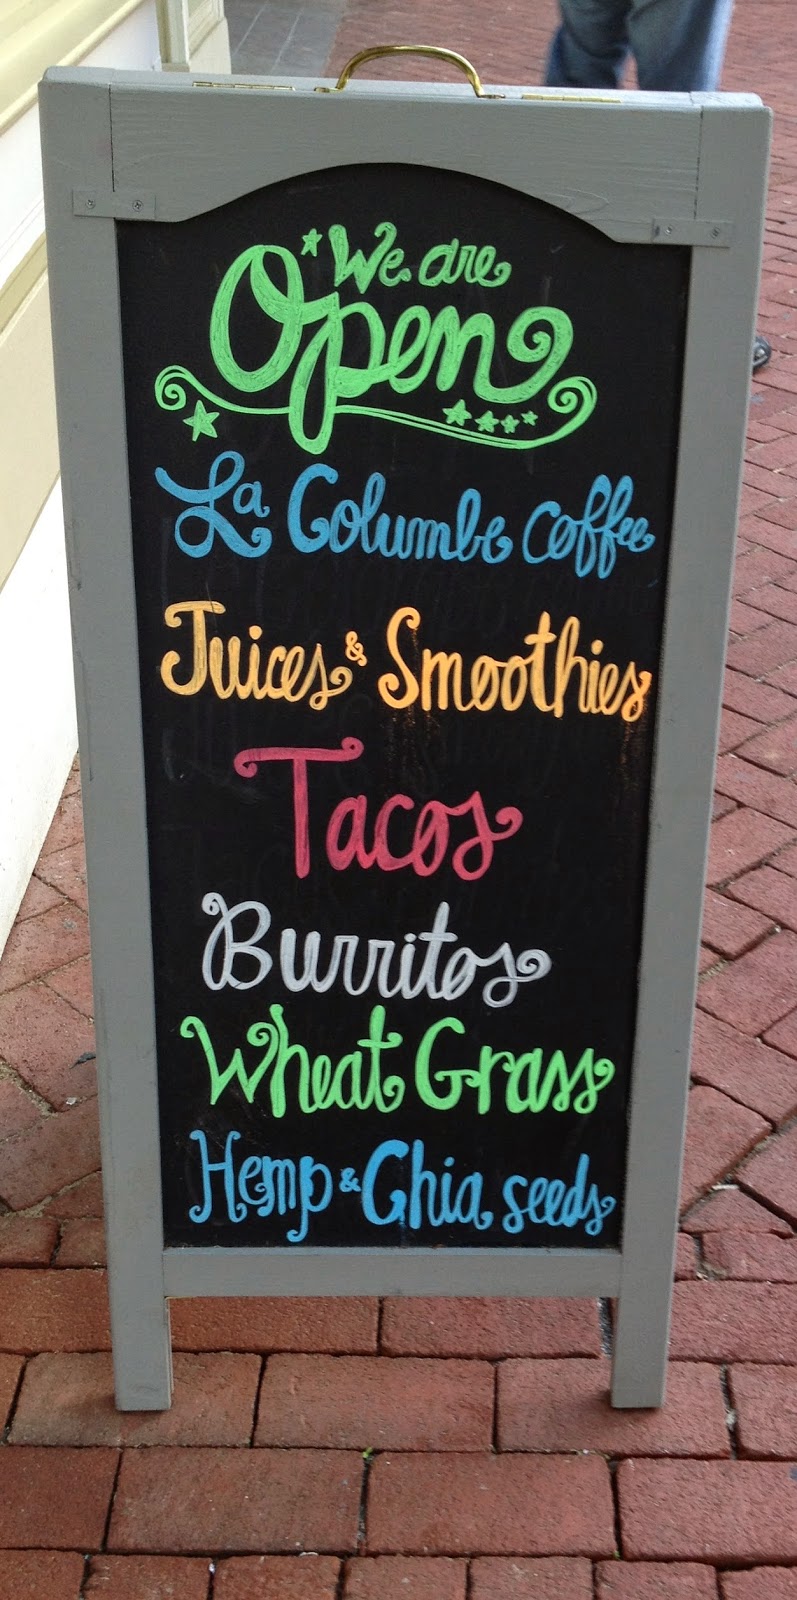 We are
Open
La Columbe Coffee
Juices & Smoothies
Tacos
Burritos
Wheat Grass
Hemp & Chia seeds